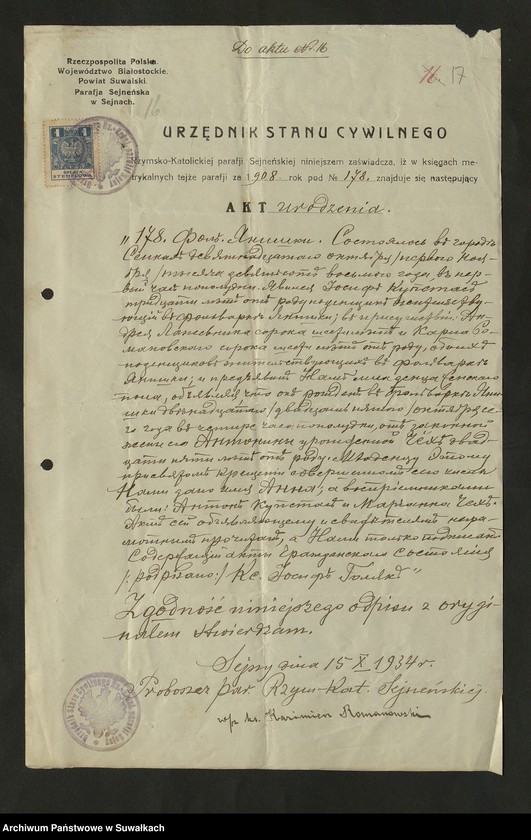 Do aktu № 16
16 17
Rzeczpospolita Polska.
Województwo Białostockie.
Powiat Suwalski.
Parafja Sejneńska
w Sejnach.
16
URZĘDNIK STANU CYWILNEGO
Rzymsko-Katolickiej parafji Sejneńskiej niniejszem zaświadcza, iż w księgach me-
trykalnych tejże parafji za 1908 rok pod № 178. znajduje się następujący
AKT urodzenia.
„178. Фольв. Янишки. Состоялось въ городѣ
Сейнахъ девятнадцатаго октября /перваго Ноя-
бря/ тысяча девятьсотъ восьмого года, въ пер-
вый часъ пополудни. Явился Іосифъ Купстасъ
тридцати лѣтъ отъ роду поденщикъ жительству-
ющій въ фольваркѣ Янишки; въ присутствіи: Ан-
дрея сорока лѣтъ и Карла Ро-
мановскаго сорока лѣтъ отъ роду, обоихъ
поденщиковъ жительствующихъ въ фольваркѣ
Янишки; и предъявилъ Намъ младенца женскаго
пола, объявляя, что онъ рожденъ въ фольваркѣ Яни-
шки двѣнадцатаго /двадцать пятаго/ октября се-
го года въ четыре часа пополудни, отъ законной
жены его Антонины урожденной Чехъ двад-
цати пяти лѣтъ отъ роду. Младенцу этому
при святомъ крещеніи совершенномъ сего числа
Нами дано имя Анна; а воспріемниками
были: Антонъ Купстасъ и Маріанна Чехъ.
Актъ сей объявляющему и свидѣтелямъ негра-
мотнымъ прочитанъ, а Нами только подписанъ.
Содержащій акты Гражданскаго Состоянія
/:podpisano:/ Кс. Іосифъ "
Zgodność niniejszego odpisu z orygi-
nałem stwierdzam.
Sejny dnia 15 X 1934 r.
Proboszcz par. Rzym-Kat. Sejneńskiej.
w/z ks. Kazimierz Romanowski
Archiwum Państwowe w Suwałkach